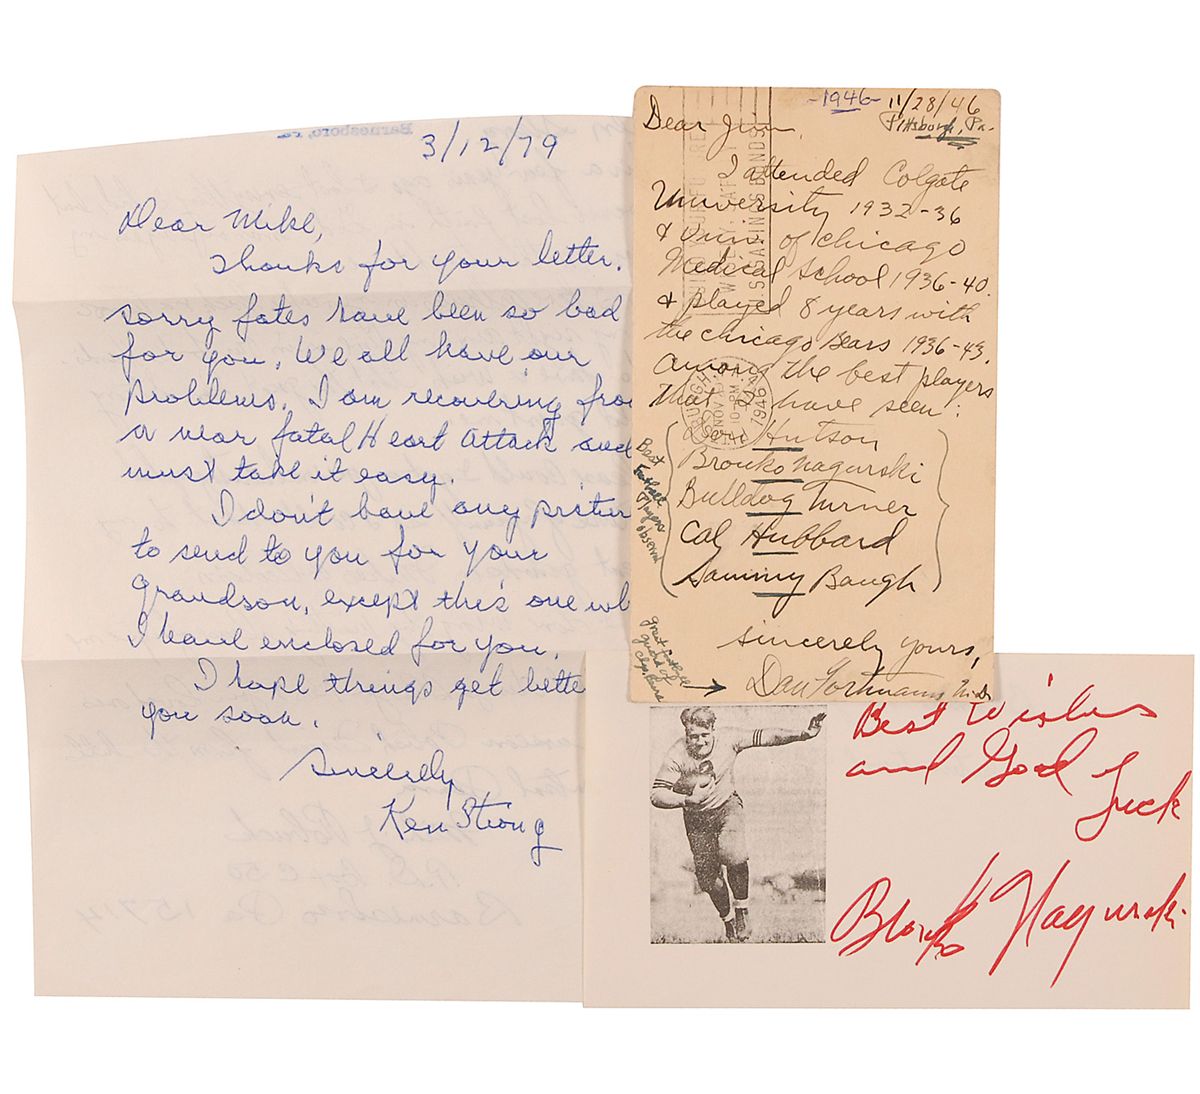 3/12/79
Dear Mike,
Thanks for your letter.
sorry fates have been so bad
for you. We all have our
problems. I am recovering fro
a near fatal Heart Attack and
must take it easy.
I don't have any
to send to you for your
grandson, except this one wh
I have enclosed for you.
I hope things get bette
you soon.
Sincerely
Ken Strong
Barnesboro, Pa.
Barnesboro Pa 15714
-1946- 11/28/46
Pittsburgh, Pa.
Dear Jim,
I attended Colgate
University 1932-36
& Univ. of Chicago
Medical School 1936-40.
& played 8 years with
the Chicago Bears 1936-43.
Among the best players
that I have seen:
Don Hutson
Bronko Nagurski
Bulldog Turner
Cal Hubbard
Sammy Baugh
Best
Football
Players
observed
Sincerely yours,
Dan Fortmann M.D.
great football
guard of
Chgo. Bears
1946
Best Wishes
and Good
Luck
Bronko Nagurski